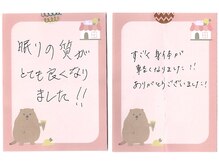 眠りの質が
とても良くなり
ました!!
すごく身体が
軽くなりました!!
ありがとうございました!